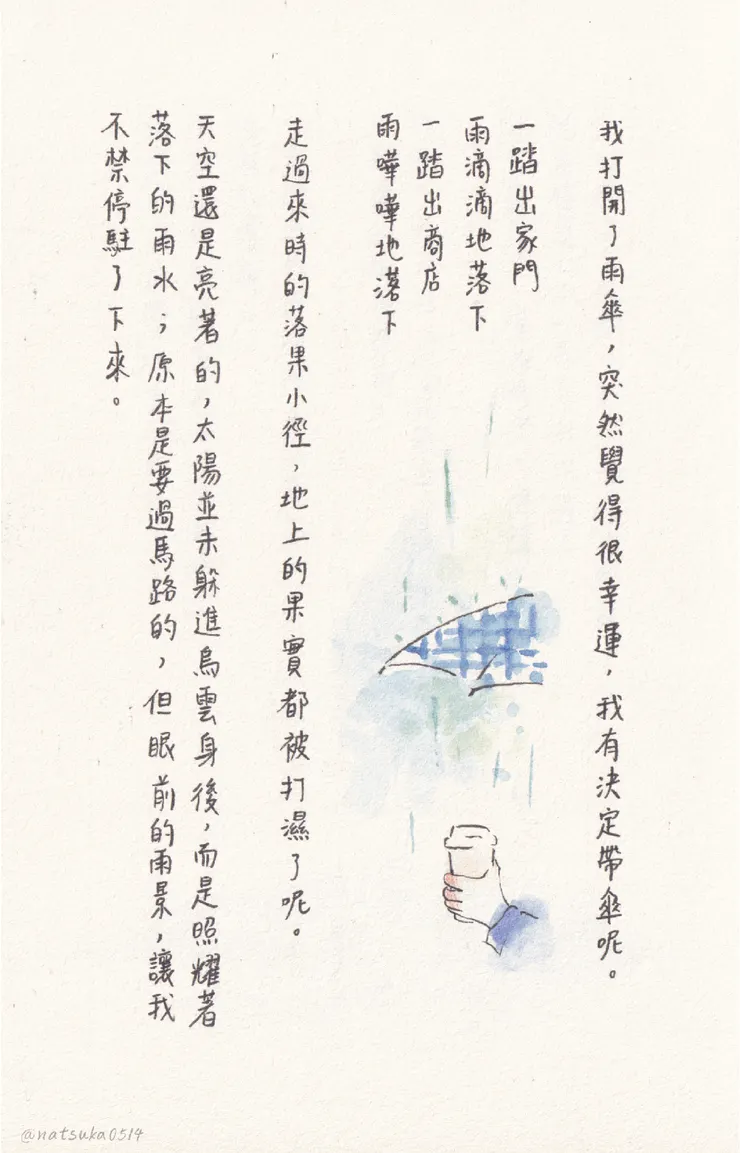 我打開了雨傘，突然覺得很幸運，我有決定帶傘呢。
一踏出家門
雨滴滴地落下
一踏出商店
雨嘩嘩地落下
走過來時的落果小徑，地上的果實都被打濕了呢。
天空還是亮著的，太陽並未躲進烏雲身後，而是照耀著
落下的雨水；原本是要過馬路的，但眼前的雨景，讓我
不禁停駐了下來。
@natsuka0514